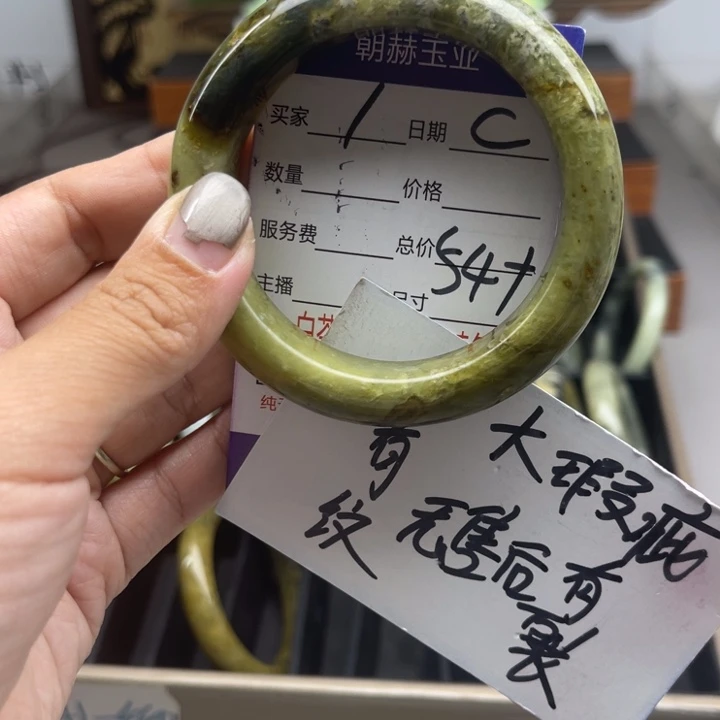 朝赫玉业
买家 1 日期 C
数量 价格
服务费 总价
主播 尺寸
54
纯
有大瑕疵
纹无售后有
裂